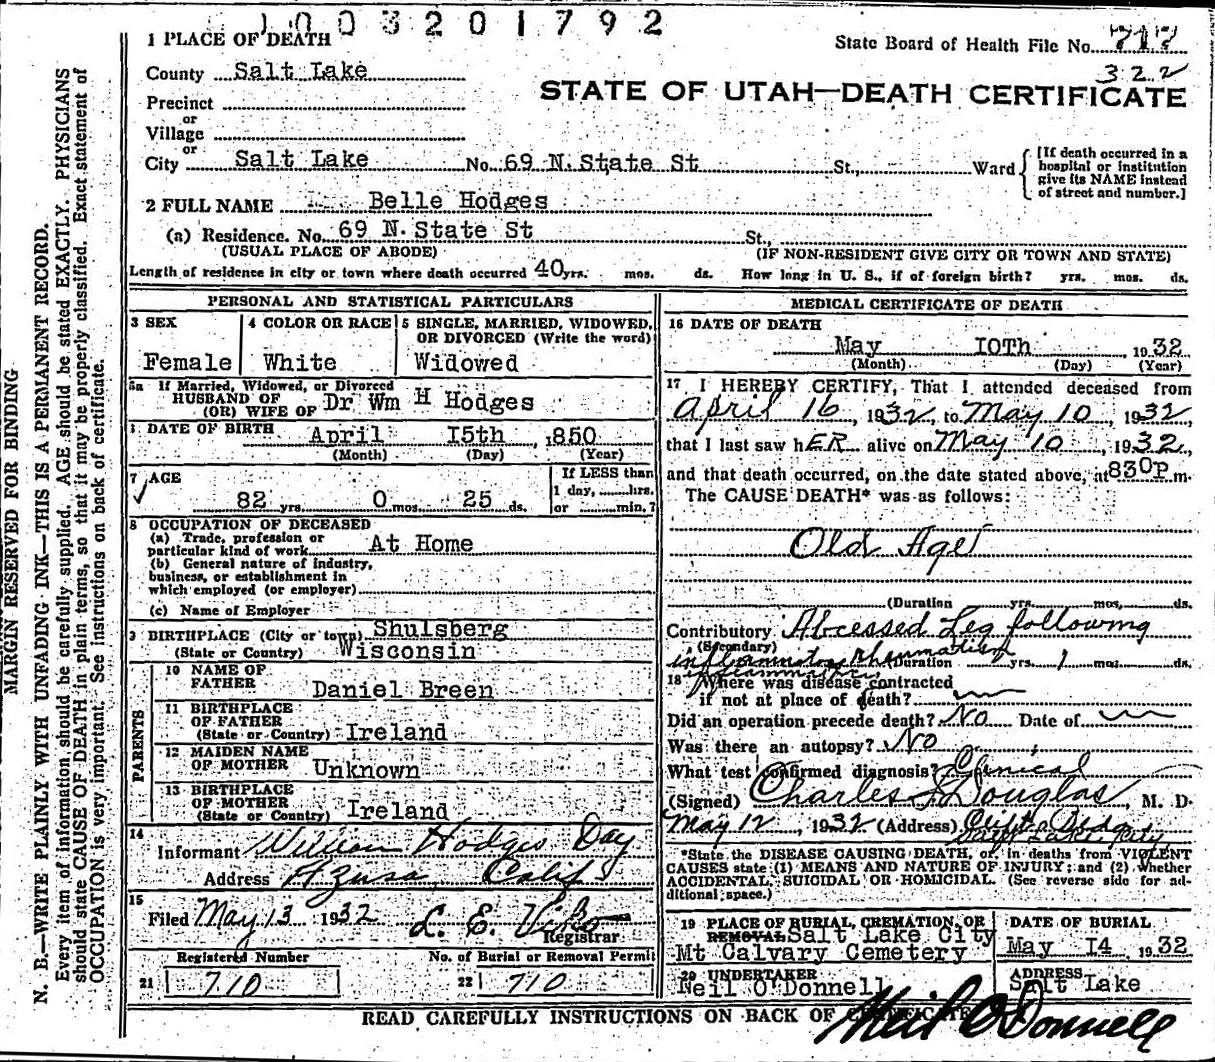 1003201792
1 PLACE OF DEATH
State Board of Health File No. 717
322
County Salt Lake
STATE OF UTAH—DEATH CERTIFICATE
Precinct
or
Village
or
City Salt Lake No. 69 N.State St St., Ward
[If death occurred in a hospital or institution give its NAME instead of street and number.]
2 FULL NAME Belle Hodges
(a) Residence. No. 69 N.State St St.,
(USUAL PLACE OF ABODE) (IF NON-RESIDENT GIVE CITY OR TOWN AND STATE)
Length of residence in city or town where death occurred 40 yrs. mos. ds. How long in U. S., if of foreign birth? yrs. mos. ds.
PERSONAL AND STATISTICAL PARTICULARS
3 SEX
Female
4 COLOR OR RACE
White
5 SINGLE, MARRIED, WIDOWED,
OR DIVORCED (Write the word)
Widowed
5a If Married, Widowed, or Divorced
HUSBAND OF
(OR) WIFE OF Dr Wm H Hodges
DATE OF BIRTH April I5th ,1850
(Month) (Day) (Year)
7 AGE
82 yrs. 0 mos. 25 ds.
If LESS than
1 day, hrs.
or min.?
8 OCCUPATION OF DECEASED
(a) Trade, profession or
particular kind of work At Home
(b) General nature of industry,
business, or establishment in
which employed (or employer)
(c) Name of Employer
9 BIRTHPLACE (City or town) Shulsberg
(State or Country) Wisconsin
PARENTS
10 NAME OF
FATHER Daniel Breen
11 BIRTHPLACE
OF FATHER
(State or Country) Ireland
12 MAIDEN NAME
OF MOTHER Unknown
13 BIRTHPLACE
OF MOTHER
(State or Country) Ireland
14
Informant William Hodges Day
Address Azusa, Calif
15
Filed May 13 1932 L. E.
Registrar
Registered Number
21 710
No. of Burial or Removal Permit
22 710
MEDICAL CERTIFICATE OF DEATH
16 DATE OF DEATH
May IOTh 1932
(Month) (Day) (Year)
17 I HEREBY CERTIFY, That I attended deceased from
April 16, 1932, to May 10, 1932
that I last saw hER alive on May 10, 1932,
and that death occurred, on the date stated above, at 830P m.
The CAUSE DEATH* was as follows:
Old Age
(Duration yrs. mos. ds.
Contributory Abcessed Leg following
(Secondary)
inflammatory rheumatism
Duration yrs. 1 mos. ds.
inflammatory
18 Where was disease contracted
if not at place of death?
Did an operation precede death? No Date of
Was there an autopsy? No
What test confirmed diagnosis? Clinical
(Signed) Charles J Douglas, M. D.
May 12, 1932 (Address) Clift Bldg
*State the DISEASE CAUSING DEATH, or, in deaths from VIOLENT
CAUSES state (1) MEANS AND NATURE OF INJURY; and (2) Whether
ACCIDENTAL, SUICIDAL OR HOMICIDAL. (See reverse side for ad-
ditional space.)
19 PLACE OF BURIAL, CREMATION, OR
REMOVAL Salt Lake City
Mt Calvary Cemetery
DATE OF BURIAL
May I4 1932
20 UNDERTAKER
Neil O'Donnell
ADDRESS
Salt Lake
Neil O'Donnell
READ CAREFULLY INSTRUCTIONS ON BACK OF CERTIFICATE
MARGIN RESERVED FOR BINDING
N. B.—WRITE PLAINLY WITH UNFADING INK—THIS IS A PERMANENT RECORD.
Every item of information should be carefully supplied. AGE should be stated EXACTLY. PHYSICIANS
should state CAUSE OF DEATH in plain terms, so that it may be properly classified. Exact statement of
OCCUPATION is very important. See instructions on back of certificate.